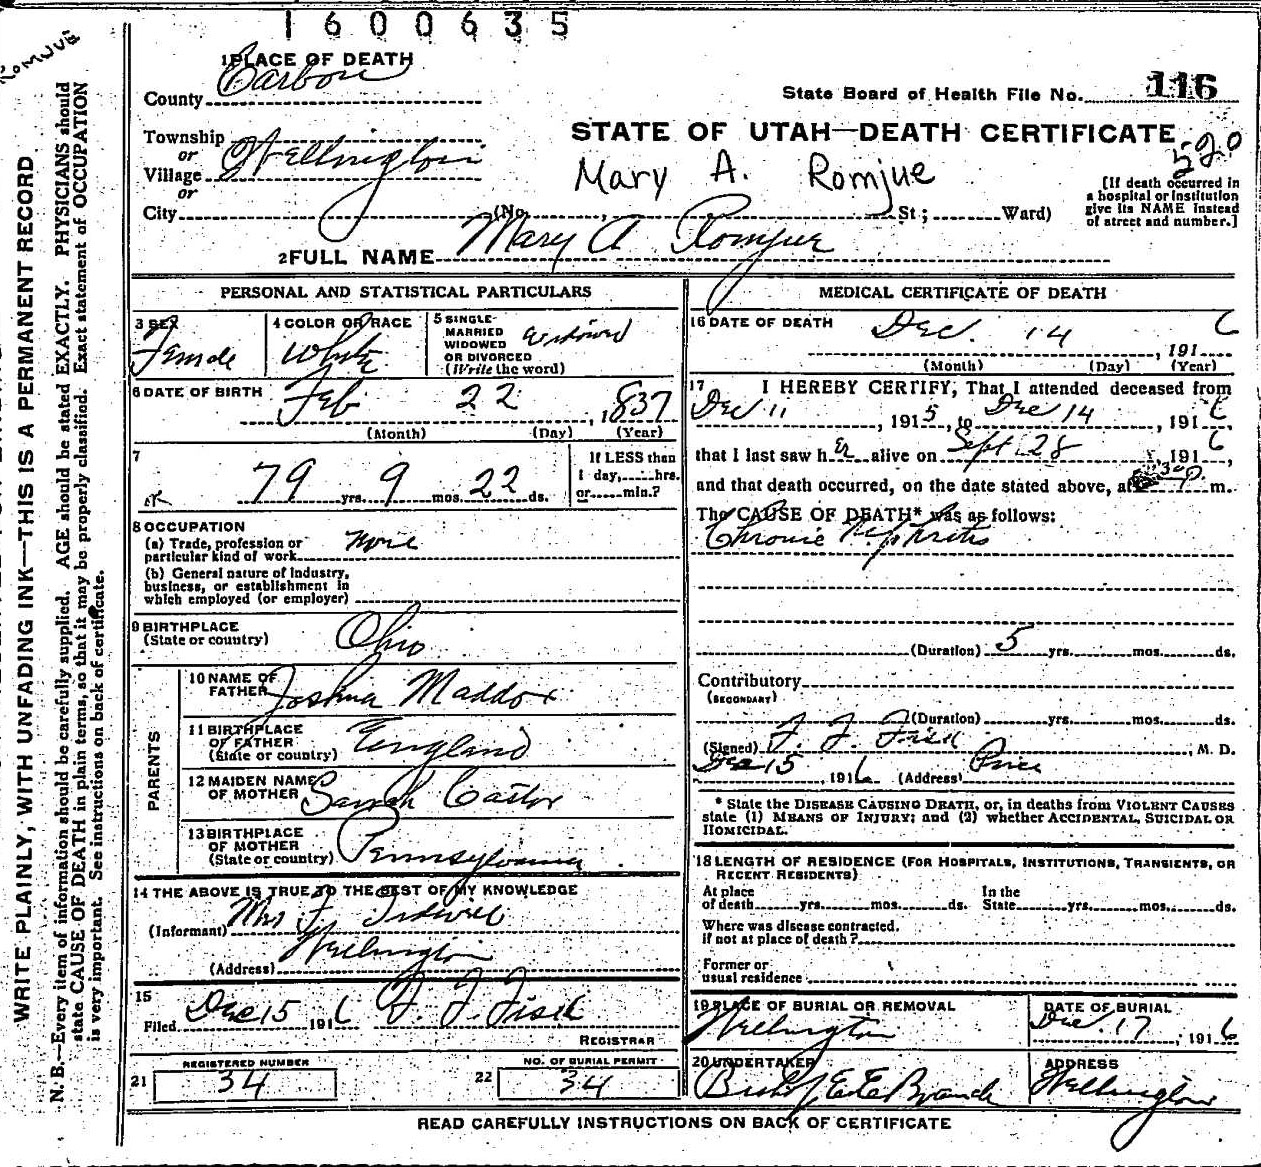 1600635
ROMJUE
1 PLACE OF DEATH
County Carbon
State Board of Health File No. 116
Township
or
Village Wellington
or
City
STATE OF UTAH—DEATH CERTIFICATE
520
Mary A. Romjue
(No. , St; Ward)
[If death occurred in
a hospital or institution
give its NAME instead
of street and number.]
2 FULL NAME Mary A Romjue
PERSONAL AND STATISTICAL PARTICULARS
3 SEX
Female
4 COLOR OR RACE
White
5 SINGLE
MARRIED
WIDOWED
OR DIVORCED
(Write the word)
Widowed
6 DATE OF BIRTH Feb 22, 1837
(Month) (Day) (Year)
7
79 yrs. 9 mos. 22 ds.
If LESS than
1 day, hrs.
or min.?
8 OCCUPATION
(a) Trade, profession or
particular kind of work None
(b) General nature of industry,
business, or establishment in
which employed (or employer)
9 BIRTHPLACE
(State or country) Ohio
PARENTS
10 NAME OF
FATHER Joshua Maddox
11 BIRTHPLACE
OF FATHER
(State or country) England
12 MAIDEN NAME
OF MOTHER Sarah Castor
13 BIRTHPLACE
OF MOTHER
(State or country) Pennsylvania
14 THE ABOVE IS TRUE TO THE BEST OF MY KNOWLEDGE
(Informant) Mrs F.
(Address) Wellington
15
Filed Dec 15 1916 F. F. Fisk
REGISTRAR
REGISTERED NUMBER
21 34
NO. OF BURIAL PERMIT
22 34
MEDICAL CERTIFICATE OF DEATH
16 DATE OF DEATH
Dec. 14, 1916
(Month) (Day) (Year)
17 I HEREBY CERTIFY, That I attended deceased from
Dec 11, 1915, to Dec 14, 1916
that I last saw her alive on Sept 28, 1916,
and that death occurred, on the date stated above, at P. m.
The CAUSE OF DEATH* was as follows:
Chronic Nephritis
(Duration) 5 yrs. mos. ds.
Contributory
(SECONDARY)
(Duration) yrs. mos. ds.
(Signed) F. F. Fisk, M. D.
Dec 15, 1916 (Address) Price
* State the DISEASE CAUSING DEATH, or, in deaths from VIOLENT CAUSES
state (1) MEANS OF INJURY; and (2) whether ACCIDENTAL, SUICIDAL OR
HOMICIDAL.
18 LENGTH OF RESIDENCE (FOR HOSPITALS, INSTITUTIONS, TRANSIENTS, OR
RECENT RESIDENTS)
At place
of death yrs. mos. ds.
In the
State yrs. mos. ds.
Where was disease contracted,
if not at place of death?
Former or
usual residence
19 PLACE OF BURIAL OR REMOVAL
Wellington
DATE OF BURIAL
Dec 17, 1916
20 UNDERTAKER
Bishop E. E. Branch
ADDRESS
Wellington
READ CAREFULLY INSTRUCTIONS ON BACK OF CERTIFICATE
WRITE PLAINLY, WITH UNFADING INK—THIS IS A PERMANENT RECORD
N. B.—Every item of information should be carefully supplied. AGE should be stated EXACTLY. PHYSICIANS should
state CAUSE OF DEATH in plain terms, so that it may be properly classified. Exact statement of OCCUPATION
is very important. See instructions on back of certificate.